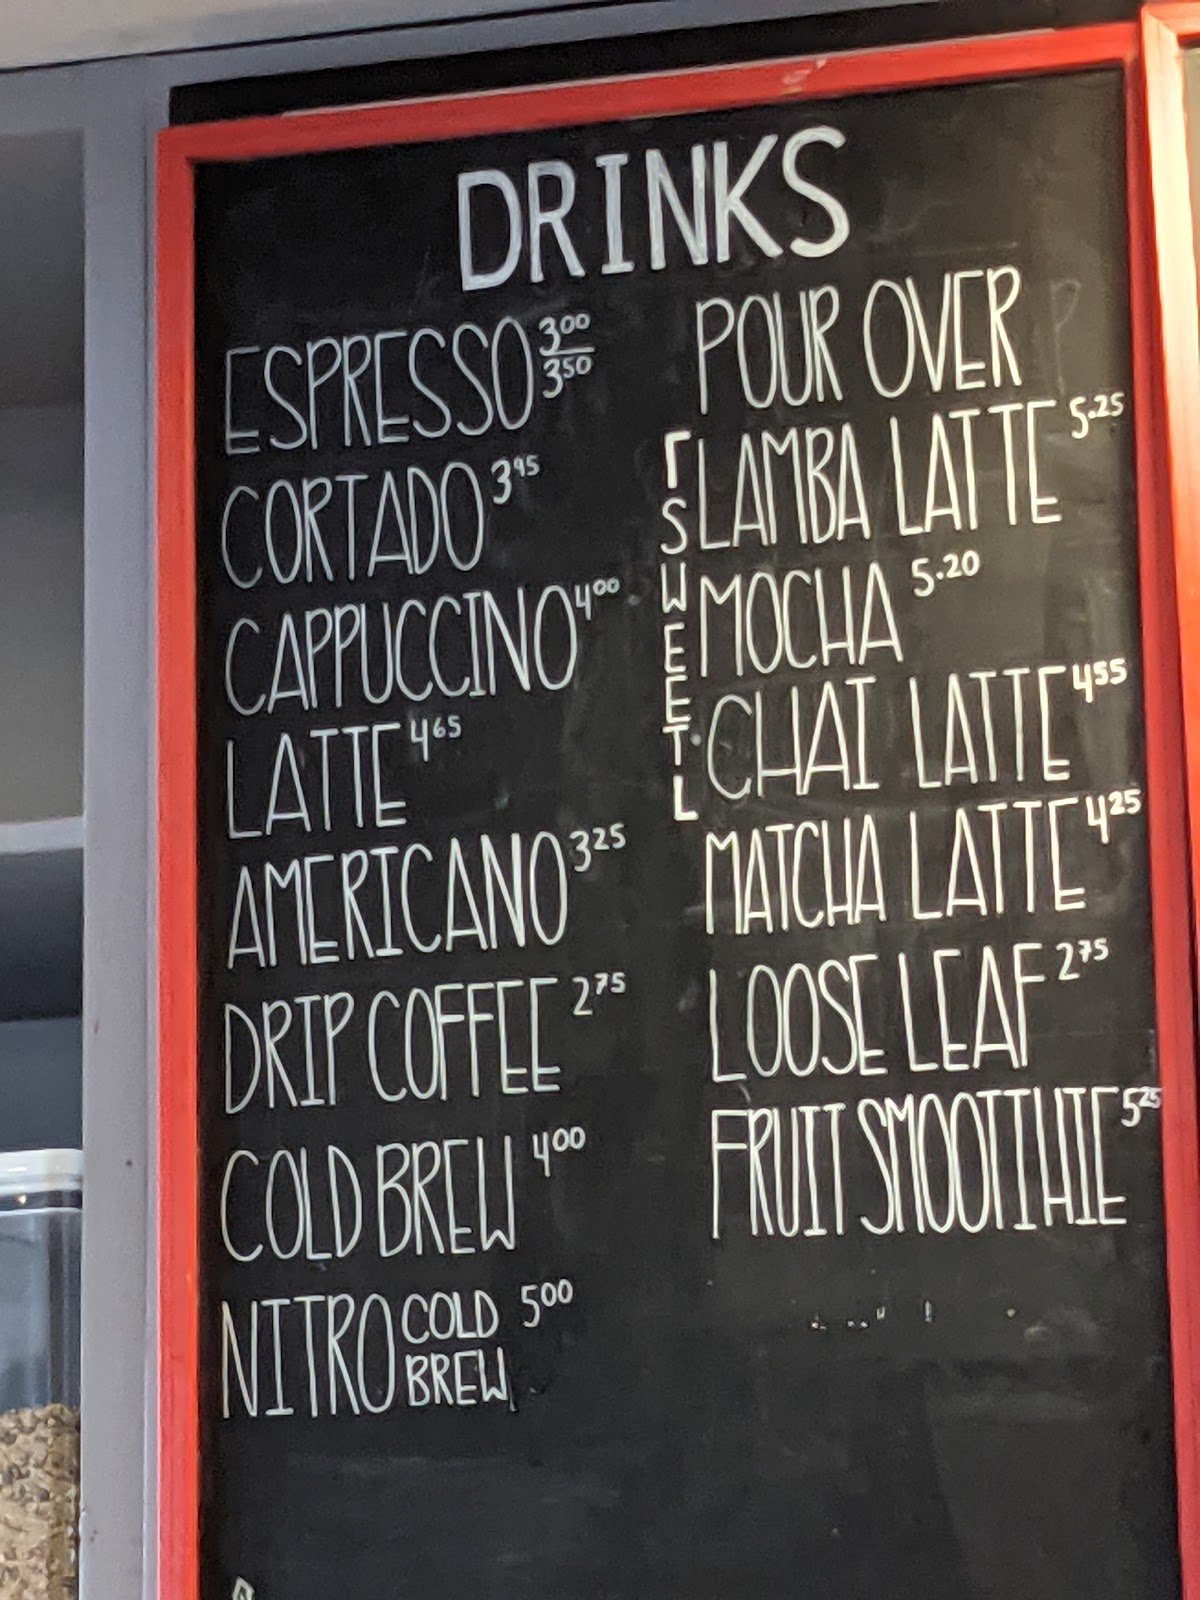 DRINKS
ESPRESSO 3.00
3.50
CORTADO 3.95
CAPPUCCINO 4.00
LATTE 4.65
AMERICANO 3.25
DRIP COFFEE 2.75
COLD BREW 4.00
NITRO COLD BREW 5.00
POUR OVER
SWEET
LAMBA LATTE 5.25
MOCHA 5.20
CHAI LATTE 4.55
MATCHA LATTE 4.25
LOOSE LEAF 2.75
FRUIT SMOOTHIE 5.25